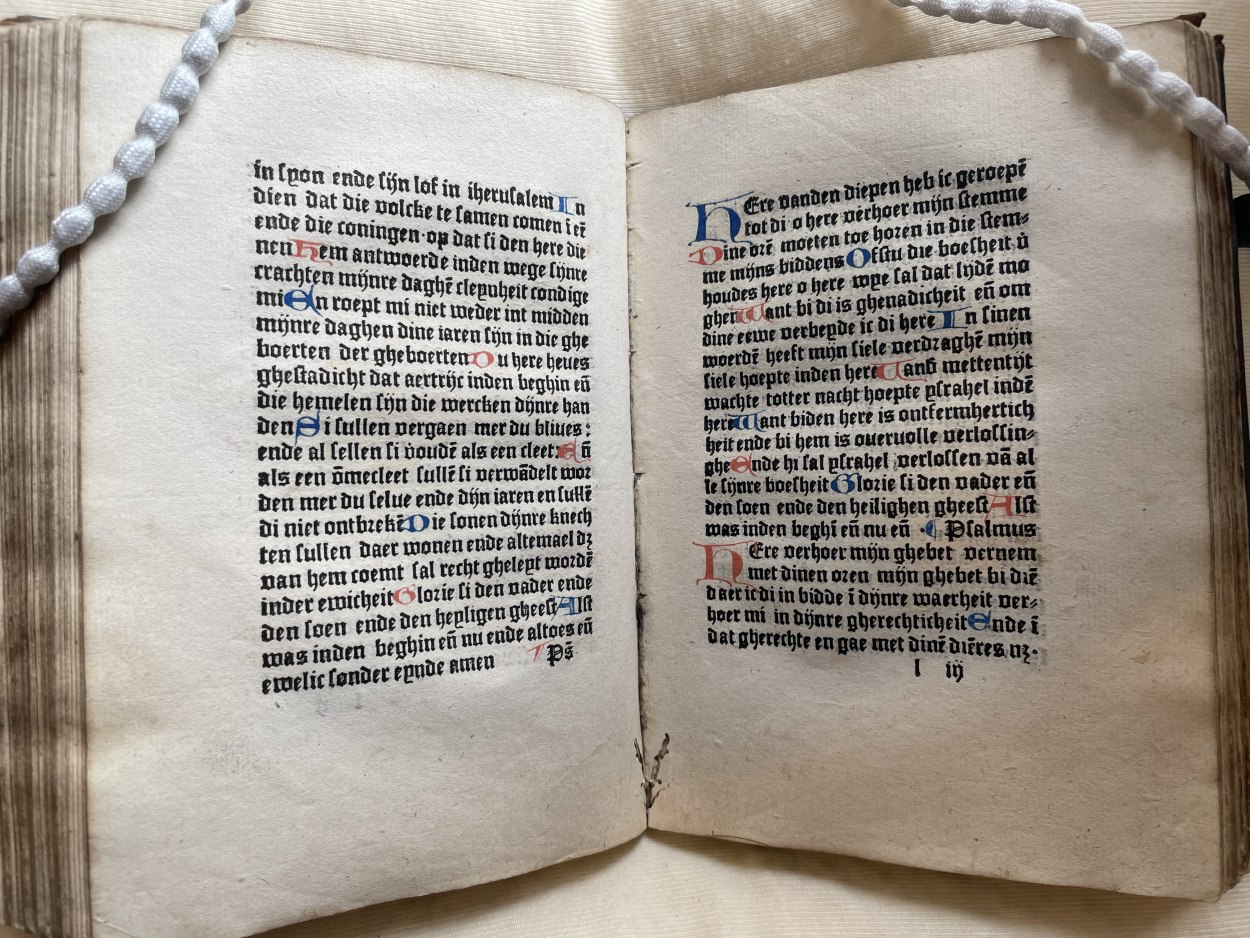 in syon ende sijn lof in iherusalem In
dien dat die volcke te samen comen ī eē
ende die coningen·op dat si den here die
nen Hem antwoerde inden wege sijnre
crachten mijnre daghē cleynheit condige
mi En roept mi niet weder int midden
mijnre daghen dine iaren sijn in die ghe
boerten der gheboerten Du here heues
ghestadicht dat aertrijc inden beghin eñ
die hemelen sijn die wercken dijnre han
den Si sullen vergaen mer du bliues:
ende al sellen si voudē als een cleet: Eñ
als een ōmecleet sullē si verwādelt wor
den mer du selue ende dijn iaren en sullē
di niet ontbrekē Die sonen dijnre knech
ten sullen daer wonen ende altemael dꝫ
van hem coemt sal recht gheleyt wordē
inder ewicheit Glorie si den vader ende
den soen ende den heyligen gheest Alst
was inden beghin eñ nu ende altoes eñ
ewelic sonder eynde amen Ps̄
HEre vanden diepen heb ic geroepē
tot di o here verhoer mijn stemme
Dine orē moeten toe horen in die stem⸗
me mijns biddens Ofstu die boesheit ū
houdes here o here wye sal dat lijdē mo
ghen Want bi di is ghenadicheit eñ om
dine eewe verbeyde ic di here In sinen
woerdē heeft mijn siele verdraghē mijn
siele hoepte inden here Vand mettentijt
wachte totter nacht hoepte ysrahel indē
here Want biden here is ontfermhertich
heit ende bi hem is oueruolle verlossin⸗
ghe Ende hi sal ysrahel verlossen vā al
le sijnre boesheit Glorie si den vader eñ
den soen ende den heilighen gheest Alst
was inden beghī eñ nu eñ · ¶ Psalmus
HEre verhoer mijn ghebet vernem
met dinen oren mijn ghebet bi diē
daer ic di in bidde ī dijnre waerheit ver⸗
hoer mi in dijnre gherechticheit Ende ī
dat gherechte en gae met dinē diēres nꝫ·
l iij